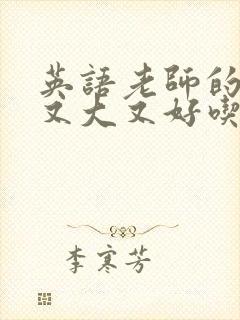 英語老師的
又大又好喫
李寒芳